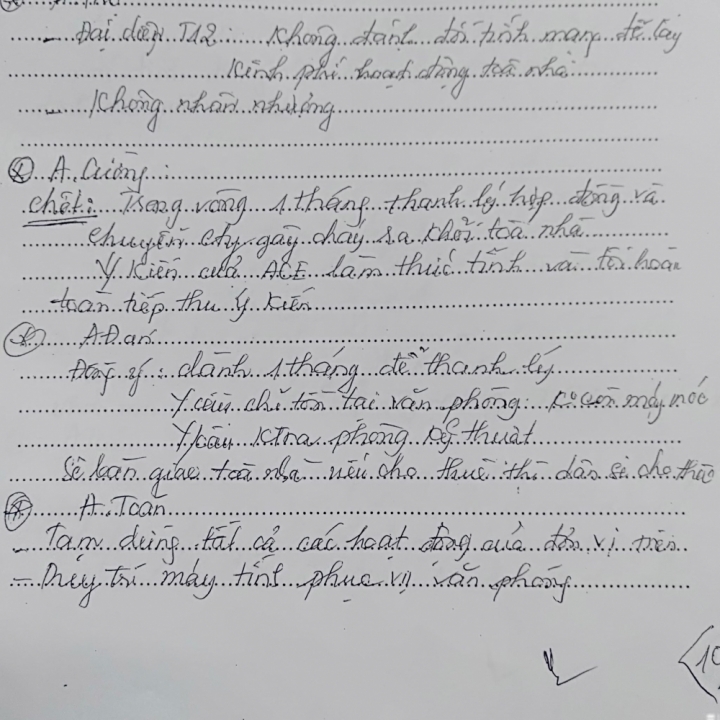 - Đại diện T12: Không đánh đổi tính mạng để lấy
kinh phí hoạt động toà nhà
- Không nhân nhượng
A. Cường:
chốt: Trong vòng 1 tháng thanh lý hợp đồng và
chuyển cty gây cháy ra khỏi toà nhà
Ý kiến của ACE làm thức tỉnh và tôi hoàn
toàn tiếp thu ý kiến
A Đan
Đồng ý: dành 1 tháng để thanh lý
Y cầu chỉ tồn tại văn phòng: ko còn máy móc
Y cầu ktra phòng kỹ thuật
Sẽ bàn giao toà nhà nếu cho thuê thì dân sẽ cho thuê
A. Toàn
- Tạm dừng tất cả các hoạt động của đơn vị trên
- Duy trì máy tính phục vụ văn phòng
10